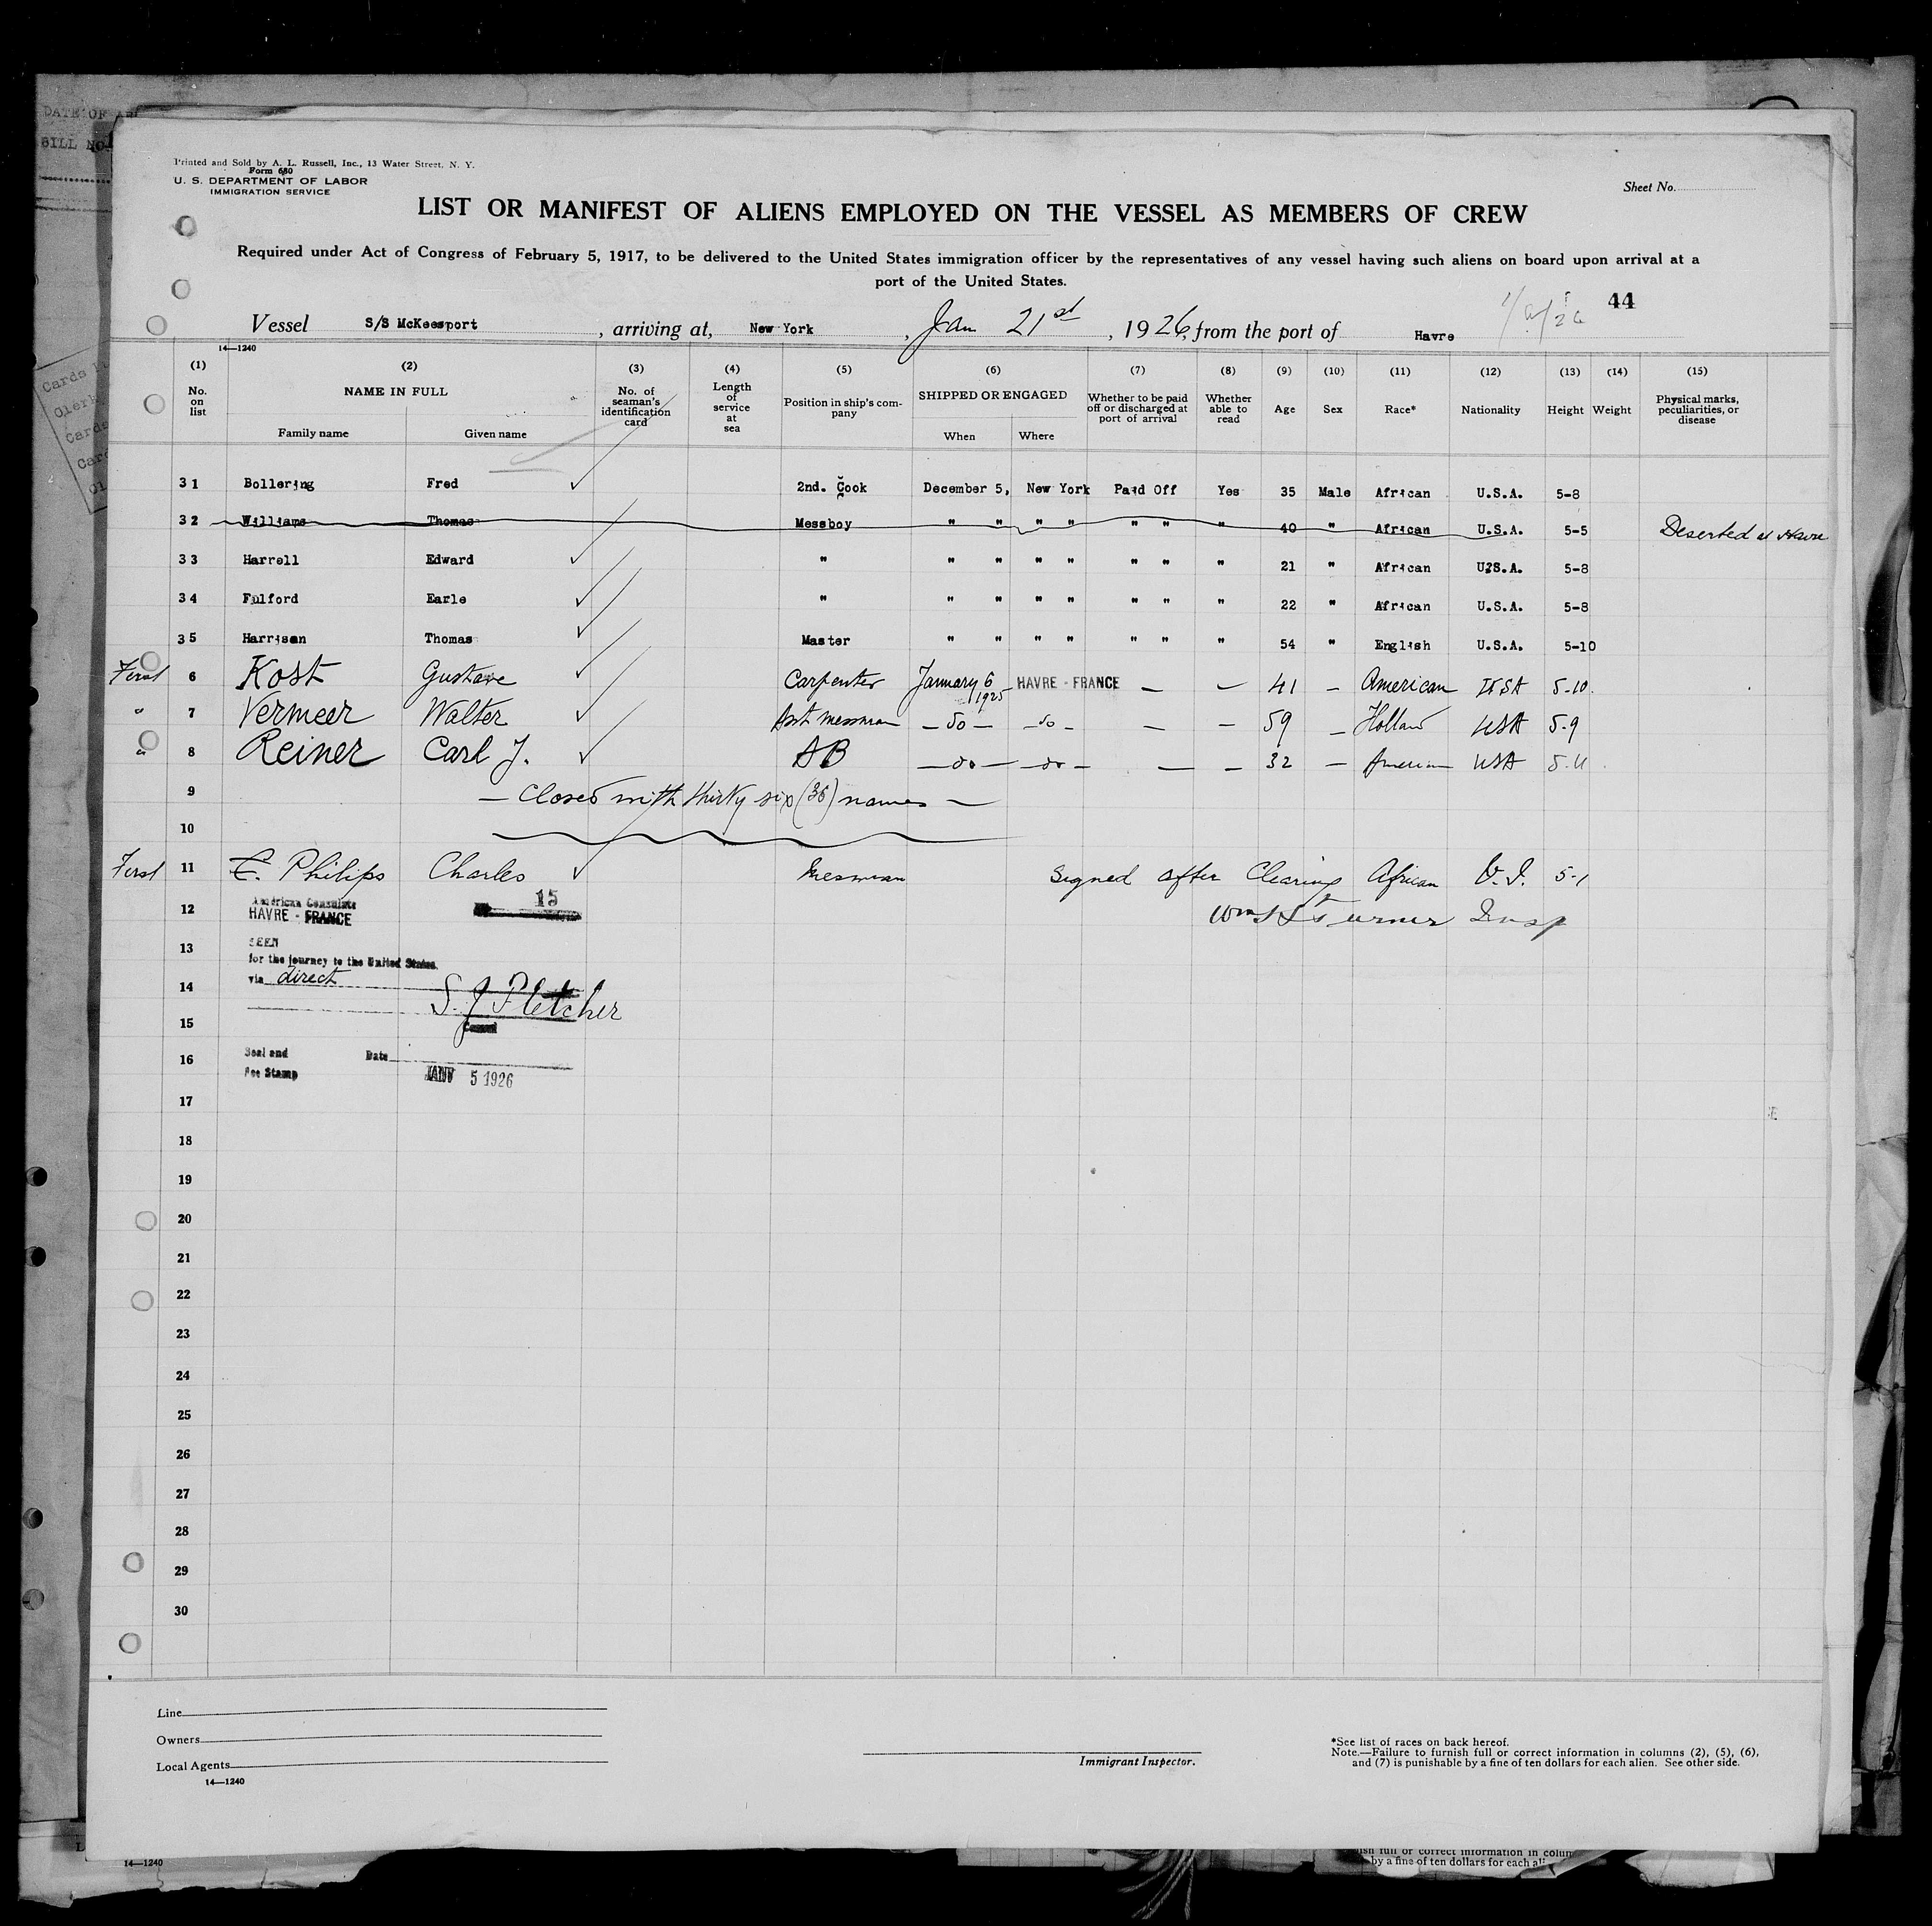 DATE OF
BILL NO.
Printed and Sold by A. L. Russell, Inc., 13 Water Street, N. Y.
Form 680
U. S. DEPARTMENT OF LABOR
IMMIGRATION SERVICE
Sheet No.
LIST OR MANIFEST OF ALIENS EMPLOYED ON THE VESSEL AS MEMBERS OF CREW
Required under Act of Congress of February 5, 1917, to be delivered to the United States immigration officer by the representatives of any vessel having such aliens on board upon arrival at a
port of the United States.
44
Vessel S/S McKeesport, arriving at, New York, Jan 21st, 1926, from the port of Havre
14—1240
(1) (2) (3) (4) (5) (6) (7) (8) (9) (10) (11) (12) (13) (14) (15)
No. on list NAME IN FULL Family name Given name No. of seaman's identification card Length of service at sea Position in ship's company SHIPPED OR ENGAGED When Where Whether to be paid off or discharged at port of arrival Whether able to read Age Sex Race* Nationality Height Weight Physical marks, peculiarities, or disease
31 Bollering Fred ✓ 2nd. Cook December 5, New York Paid Off Yes 35 Male African U.S.A. 5-8
32 Williams Thomas Messboy " " " " " " " 40 " African U.S.A. 5-5 Deserted at Havre
33 Harrell Edward ✓ " " " " " " " " 21 " African U.S.A. 5-8
34 Fulford Earle ✓ " " " " " " " " 22 " African U.S.A. 5-8
35 Harrison Thomas ✓ Master " " " " " " " 54 " English U.S.A. 5-10
First 6 Kost Gustave ✓ Carpenter January 6 1925 HAVRE - FRANCE — — 41 — American USA 5-10.
" 7 Vermeer Walter ✓ Asst messman — do — — do — — — 59 — Holland USA 5-9
" 8 Reiner Carl J. ✓ AB — do — — do — — — 32 — American USA 5-11
9 — Closed with thirty six (36) names —
10
First 11 E. Philips Charles ✓ Messman Signed after Clearing African V.I. 5-1
12 American Consulate 15
HAVRE - FRANCE Wm H Turner Insp
13 SEEN
for the journey to the United States
14 via direct
S. J. Fletcher
15 Consul
16 Seal and Date
Fee Stamp JANV 5 1926
17
18
19
20
21
22
23
24
25
26
27
28
29
30
Line
Owners
Local Agents
14—1240
Immigrant Inspector.
*See list of races on back hereof.
Note.—Failure to furnish full or correct information in columns (2), (5), (6),
and (7) is punishable by a fine of ten dollars for each alien. See other side.
14—1240
full or correct information in colum
by a fine of ten dollars for each al